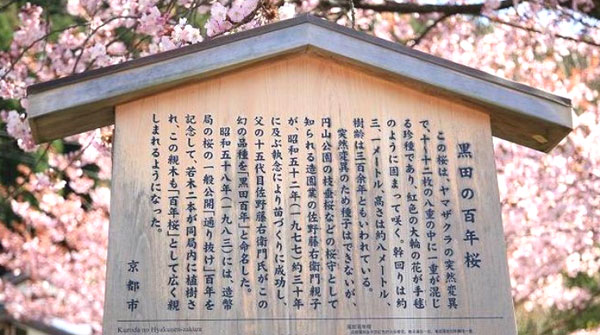 黒田の百年桜
この桜は、ヤマザクラの突然変異
で、十〜十二枚の八重の中に一重が混じ
る珍種であり、紅色の大輪の花が手毬
のように固まって咲く。幹回りは約
三、一メートル、高さは約八メートル、
樹齢は三百余年ともいわれている。
突然変異のため種子はできないが、
円山公園の枝垂桜などの桜守として
知られる造園業の佐野藤右衛門親子
が、昭和五十二年(一九七七)約三十年
に及ぶ執念により苗づくりに成功し、
父の十五代目佐野藤右衛門氏がこの
幻の品種を「黒田百年」と命名した。
昭和五十八年(一九八三)には、造幣
局の桜の一般公開「通り抜け」百年を
記念して、若木二本が同局内に植樹さ
れ、この親木も「百年桜」として広く親
しまれるようになった。
京都市
Kuroda no Hyakunen-zakura